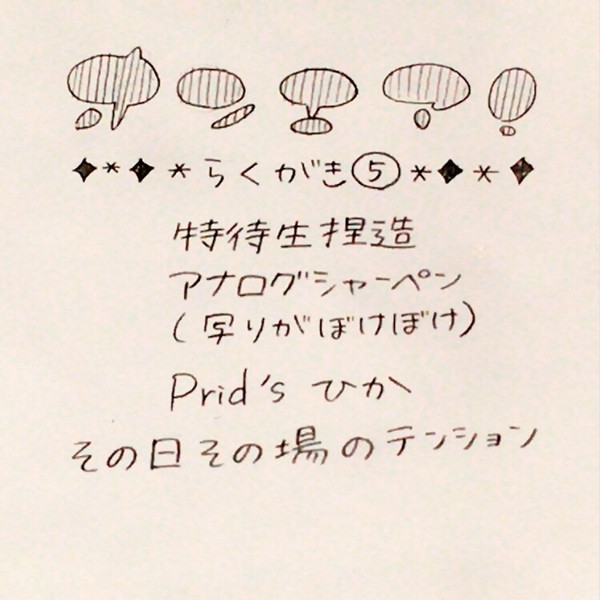 !?!?!
◆*◆*らくがき⑤*◆*◆
特待生捏造
アナログシャーペン
(写りがぼけぼけ)
Prid's ひか
その日その場のテンション